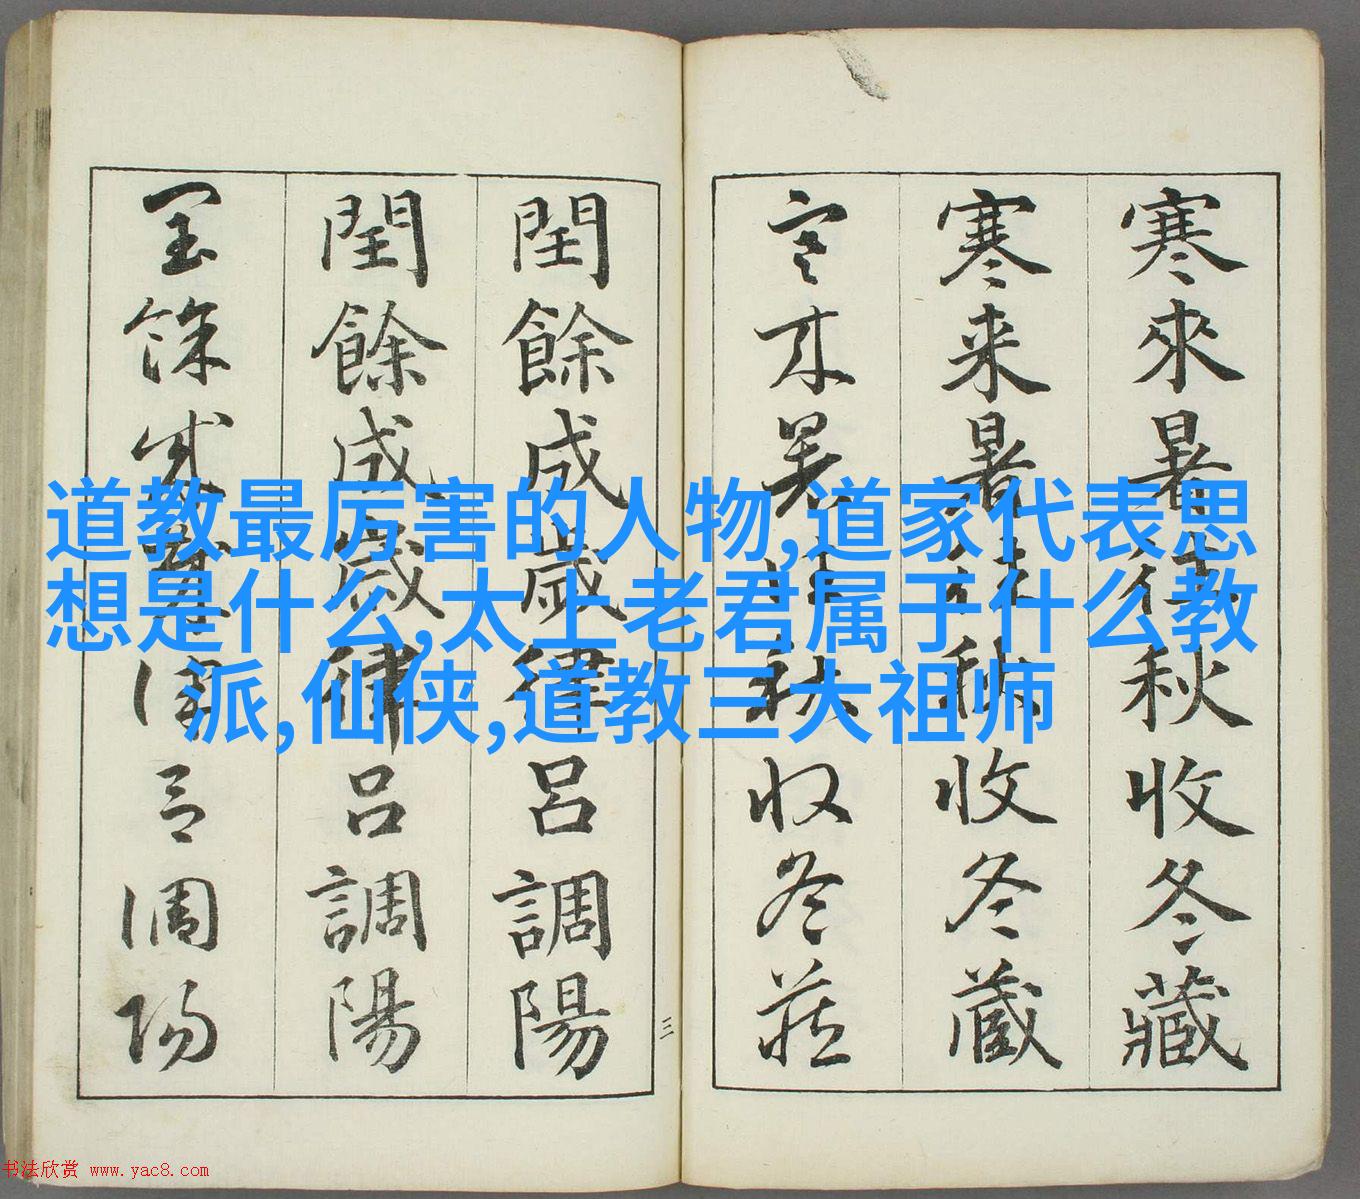 寒來暑往秋收冬藏
寒来暑往秋收冬蔵
寒来暑往秋收冬藏
閏餘成歲律呂調陽
閏餘成歲律呂調陽
閏餘成歲律呂調陽
三
道教最厉害的人物,道家代表思
想是什么,太上老君属于什么教
派,仙侠,道教三大祖师
书法欣赏 www.yac8.com